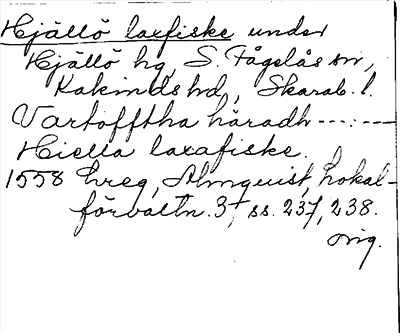 Hjällö laxfiske under
Hjällö hg, S. Fågelås sn,
Kakinds hd, Skarab. l.
Vartofftha häradh ---:---
Hiella laxafiske.
1558 hreg, Almquist, Lokal-
förvaltn. 3, ss. 237, 238.
orig.